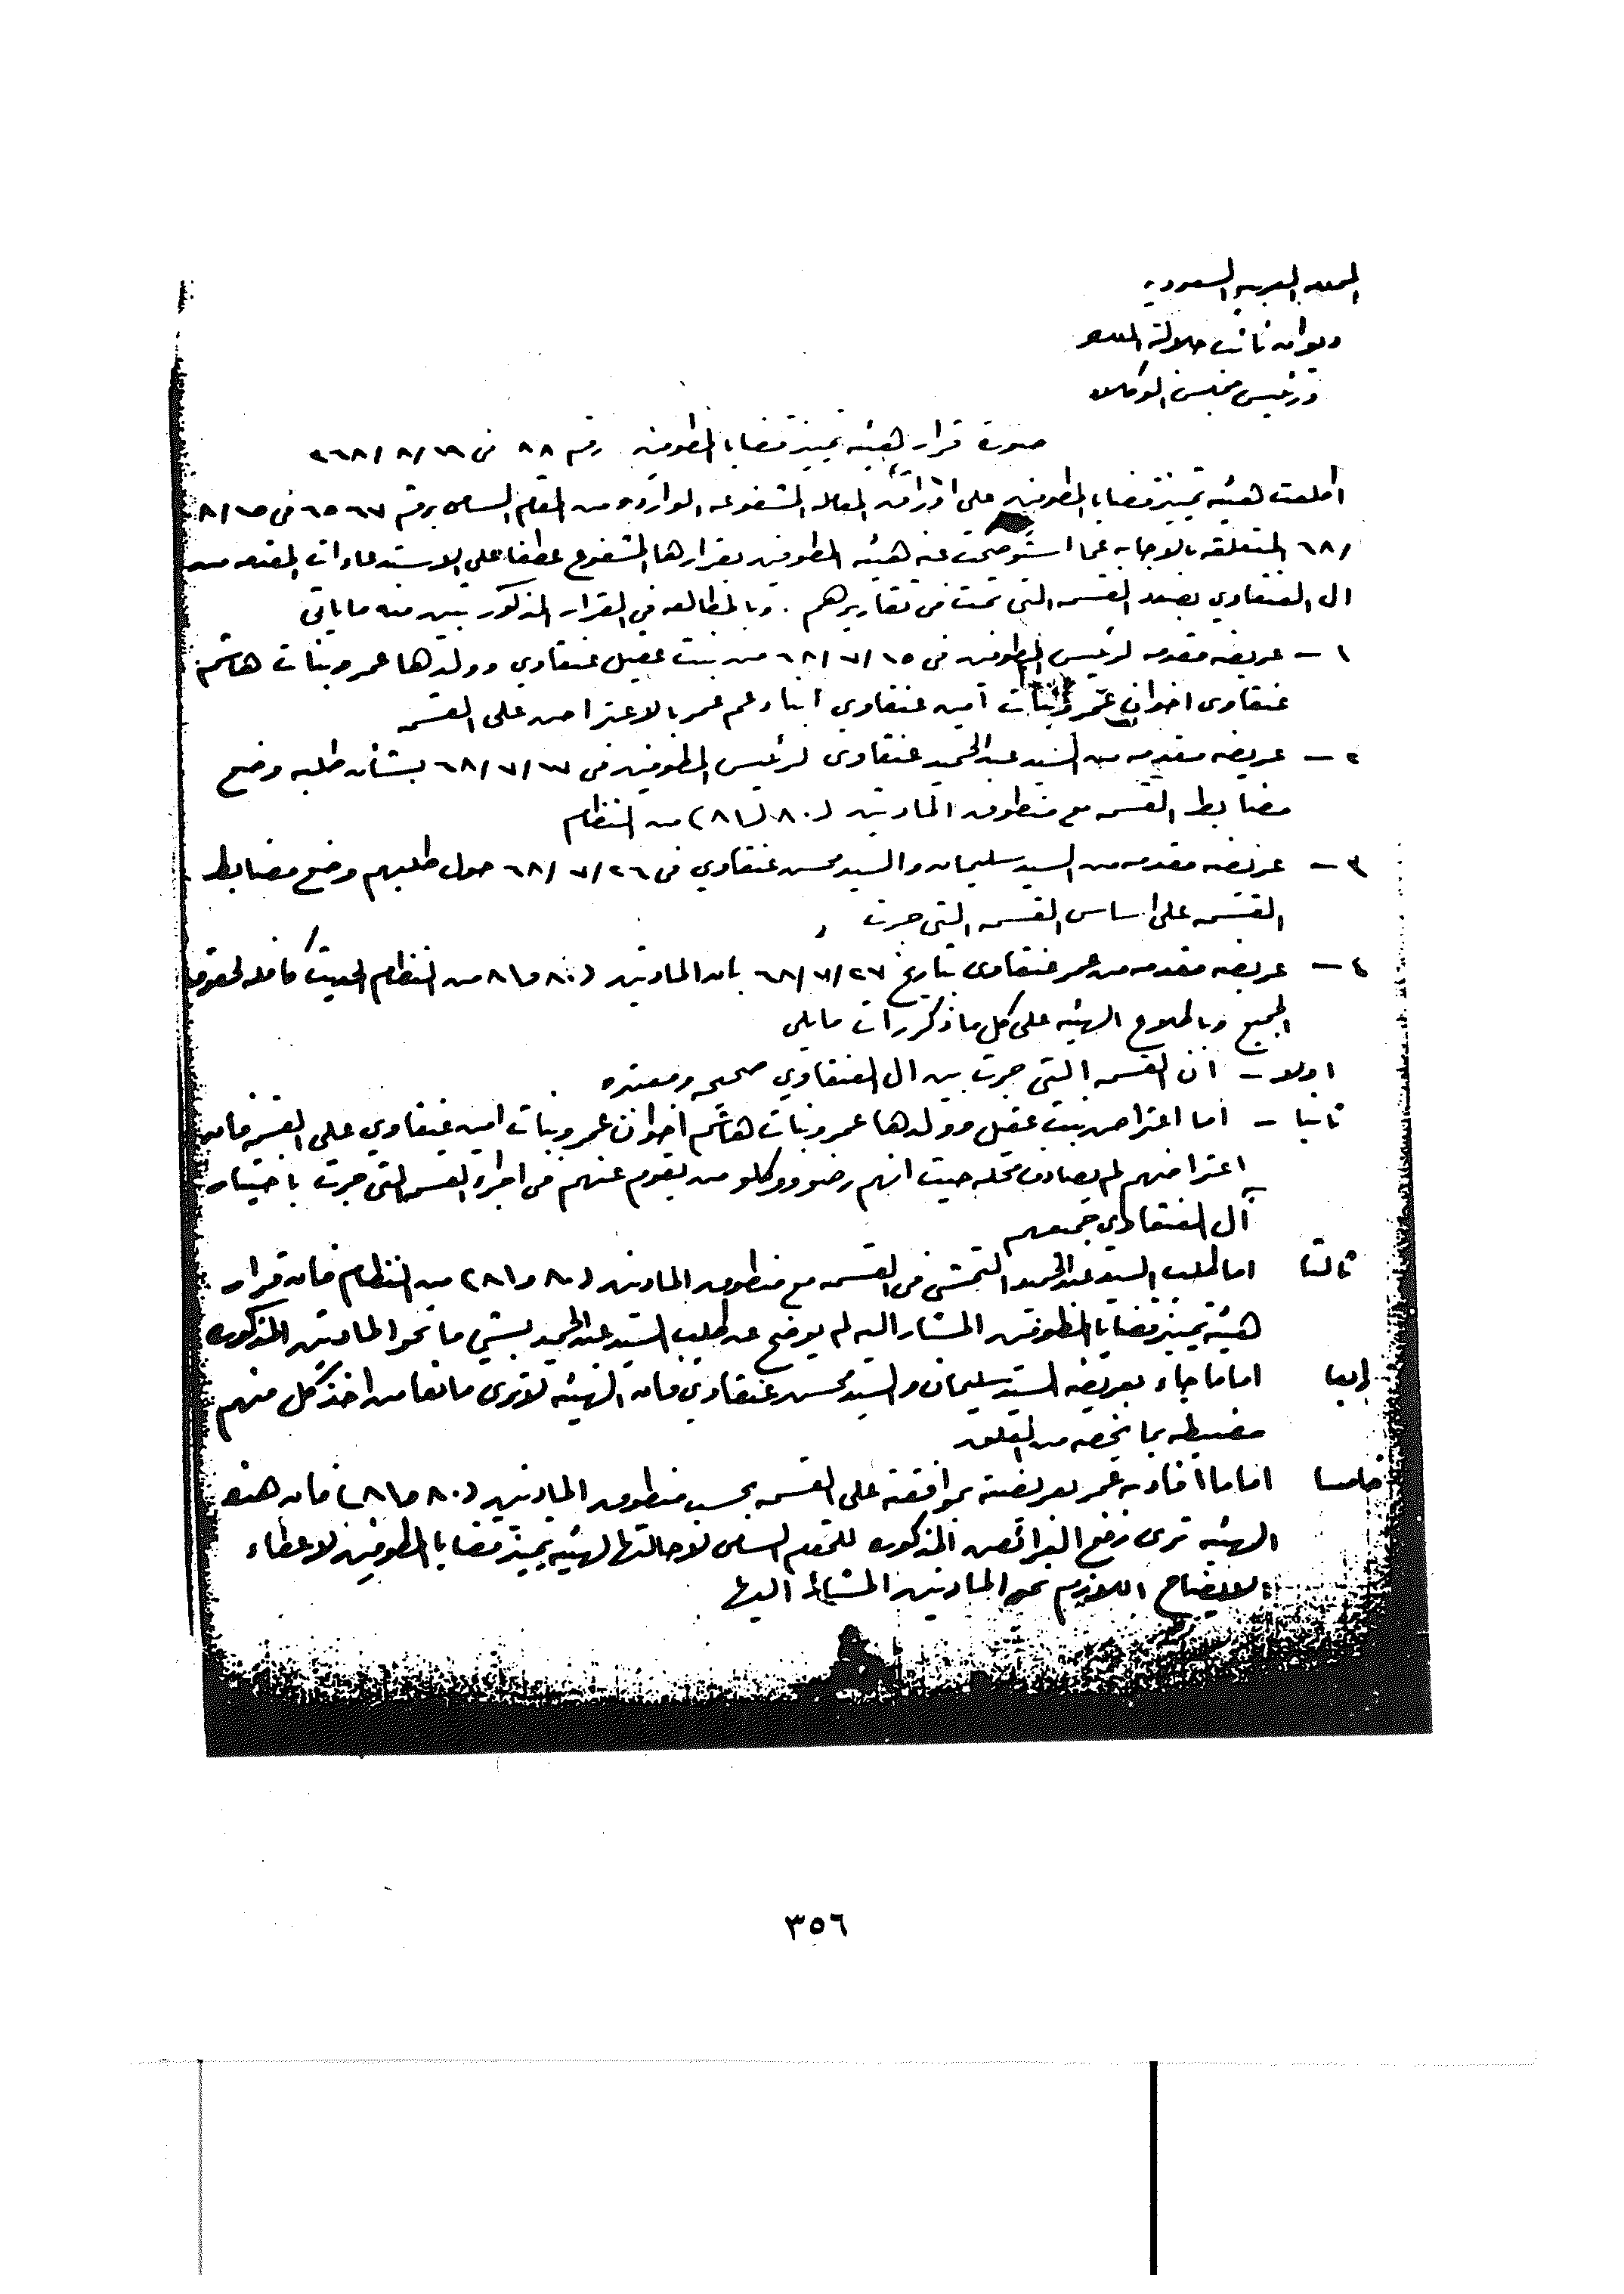 المملكة العربية السعودية
ديوان نائب جلالة الملك
ورئيس مجلس الوكلاء
صورة قرار هيئة تمييز قضايا المطوفين رقم ٨٨ في ٦٨/٨/١٩
اطلعت هيئة تمييز قضايا المطوفين على اوراق المعاملة المشفوعه الوارده من المقام السامي برقم ٦٥٦٧ في ٨/١٥
/٦٨ المتعلقه بالاجابه عما استوضحت عنه هيئة المطوفين بقرارها المشفوع عطفا على الاستدعاءات المقدمه من
ال العنقاوي بصدد القسمه التي تمت في تقاريرهم . وبالمطالعه في القرار المذكور تبين منه ماياتي
١ – عريضه مقدمه لرئيس المطوفين في ٦٨/٧/١٥ من بنت عقيل عنقاوي وولدها عمر وبنات هاشم
عنقاوى اخوان عمر وبنات أمين عنقاوي أبناء عم عمر بالاعتراض على القسمه
٢ – عريضه مقدمه من السيد عبدالحميد عنقاوى لرئيس المطوفين في ٦٨/٧/١٧ بشأن طلبه وضع
مضابط القسمه مع منطوق المادتين (٨٠ و ٨١) من النظام
٣ – عريضه مقدمه من السيد سليمان والسيد محسن عنقاوي في ٦٨/٧/٢٦ حول طلبهم وضع مضابط
القسمه على اساس القسمه التي جرت
٤ – عريضه مقدمه من عمر عنقاوى بتاريخ ٦٨/٧/٢٧ بان المادتين (٨٠ و ٨١ من النظام كافله لحقوق
الجميع وباطلاع الهيئه على كل ما ذكر رأت مايلي
اولا – ان القسمه التي جرت بين ال العنقاوي صحيحه ومعتبره
ثانيا – اما اعتراض بنت عقيل وولدها عمر وبنات هاشم اخوان عمر وبنات امين عنقاوي على القسمه فان
اعتراضهم لم يصادف محله حيث انهم رضوا ووكلو من يقوم عنهم في اجراء القسمه التي جرت
آل العنقاوي جميعهم
ثالثا اما طلب السيد عبدالحميد التمشي في القسمه مع منطوق المادتين (٨٠ و ٨١) من النظام فان قرار
هيئة تمييز قضايا المطوفين المشار اليه لم يوضح عن طلب السيد عبدالحميد بشي ما نحو المادتين المذكوره
رابعا اما ما جاء بعريضه السيد سليمان والسيد محسن عنقاوي فان الهيئه لا ترى مانعا من اخذ كل منهم
مضبطه بما يخصه من
خامسا اما ما افاد به عمر بعريضته بموافقته على القسمه بحسب منطوق المادتين (٨٠ و ٨١) فان هذه
الهيئه ترى رفع العرائض المذكوره للمقام السامي لاحالتها لهيئة تمييز قضايا المطوفين لاعطاء
الايضاح اللازم نحو المادتين المشار اليها
٣٥٦